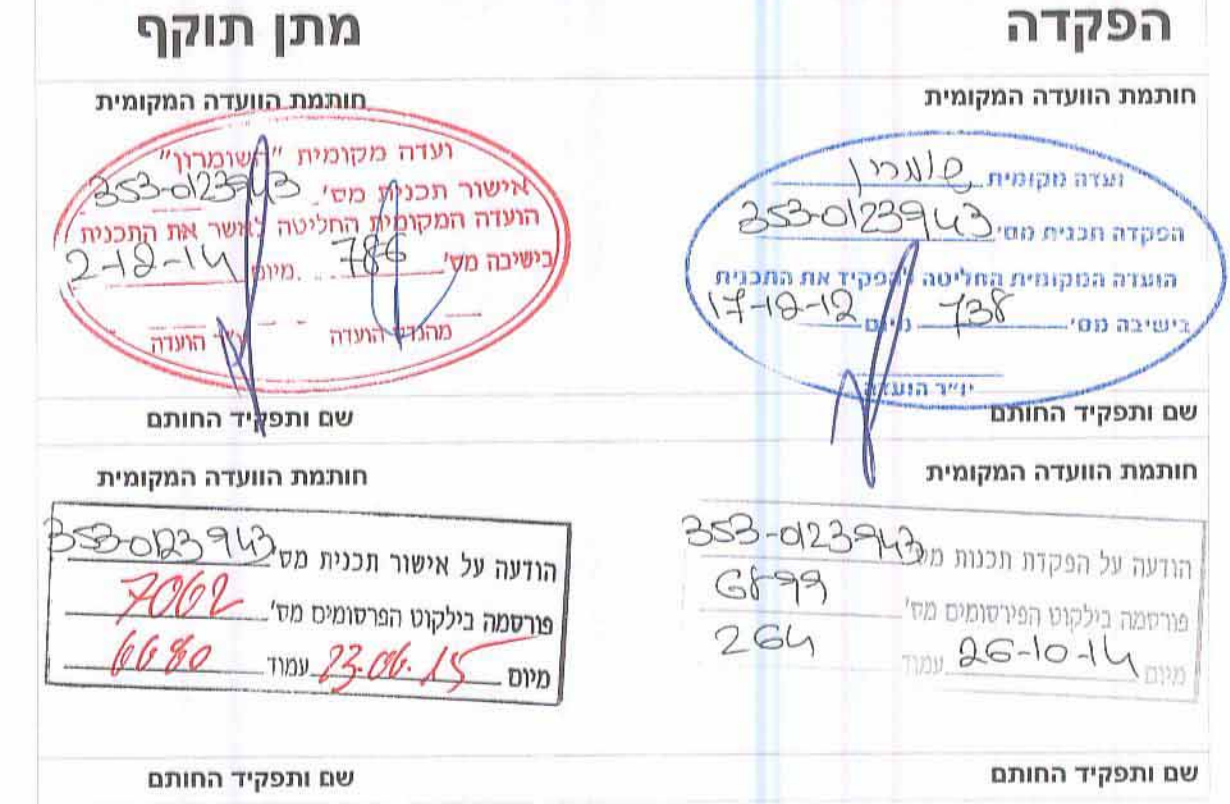 הפקדה
חותמת הוועדה המקומית
ועדה מקומית שומרון
הפקדה תכנית מס' 353-0123943
הועדה המקומית החליטה להפקיד את התכנית
בישיבה מס' 738 מיום 17-12-12
יו"ר הועדה
שם ותפקיד החותם
חותמת הוועדה המקומית
הודעה על הפקדת תכנות מס' 353-0123943
פורסמה בילקוט הפירסומים מס' 6899
מיום 26-10-14 עמוד 264
שם ותפקיד החותם
מתן תוקף
חותמת הוועדה המקומית
ועדה מקומית "השומרון"
אישור תכנית מס' 353-0123943
הועדה המקומית החליטה לאשר את התכנית
בישיבה מס' 786 מיום 2-12-14
מהנדס הועדה יו"ר הועדה
שם ותפקיד החותם
חותמת הוועדה המקומית
הודעה על אישור תכנית מס' 353-0123943
פורסמה בילקוט הפרסומים מס' 7062
מיום 23.06.15 עמוד 6680
שם ותפקיד החותם